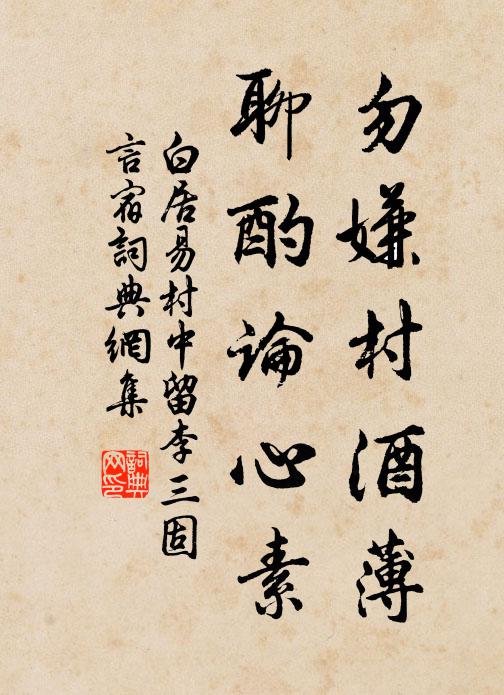 勿嫌村酒薄
聊酌論心素
白居易村中留李三固
言宿詞典網集
詞典
网印